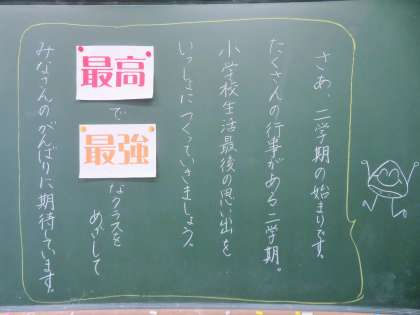 さあ、二学期の始まりです。
たくさんの行事がある二学期。
小学校生活最後の思い出を
いっしょにつくっていきましょう。
最高で最強なクラスを
めざして
みなさんのがんばりに期待しています。